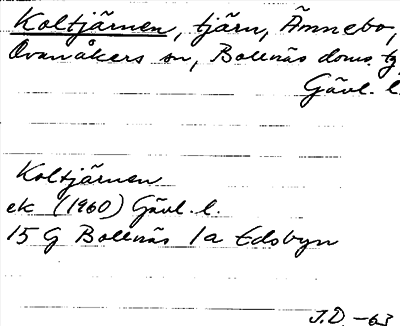 Koltjärnen, tjärn, Ämnebo,
Ovanåkers sn, Bollnäs doms. tg
Gävl. l.
Koltjärnen
ek (1960) Gävl. l.
15 G Bollnäs 1a Edsbyn
J.D. -63